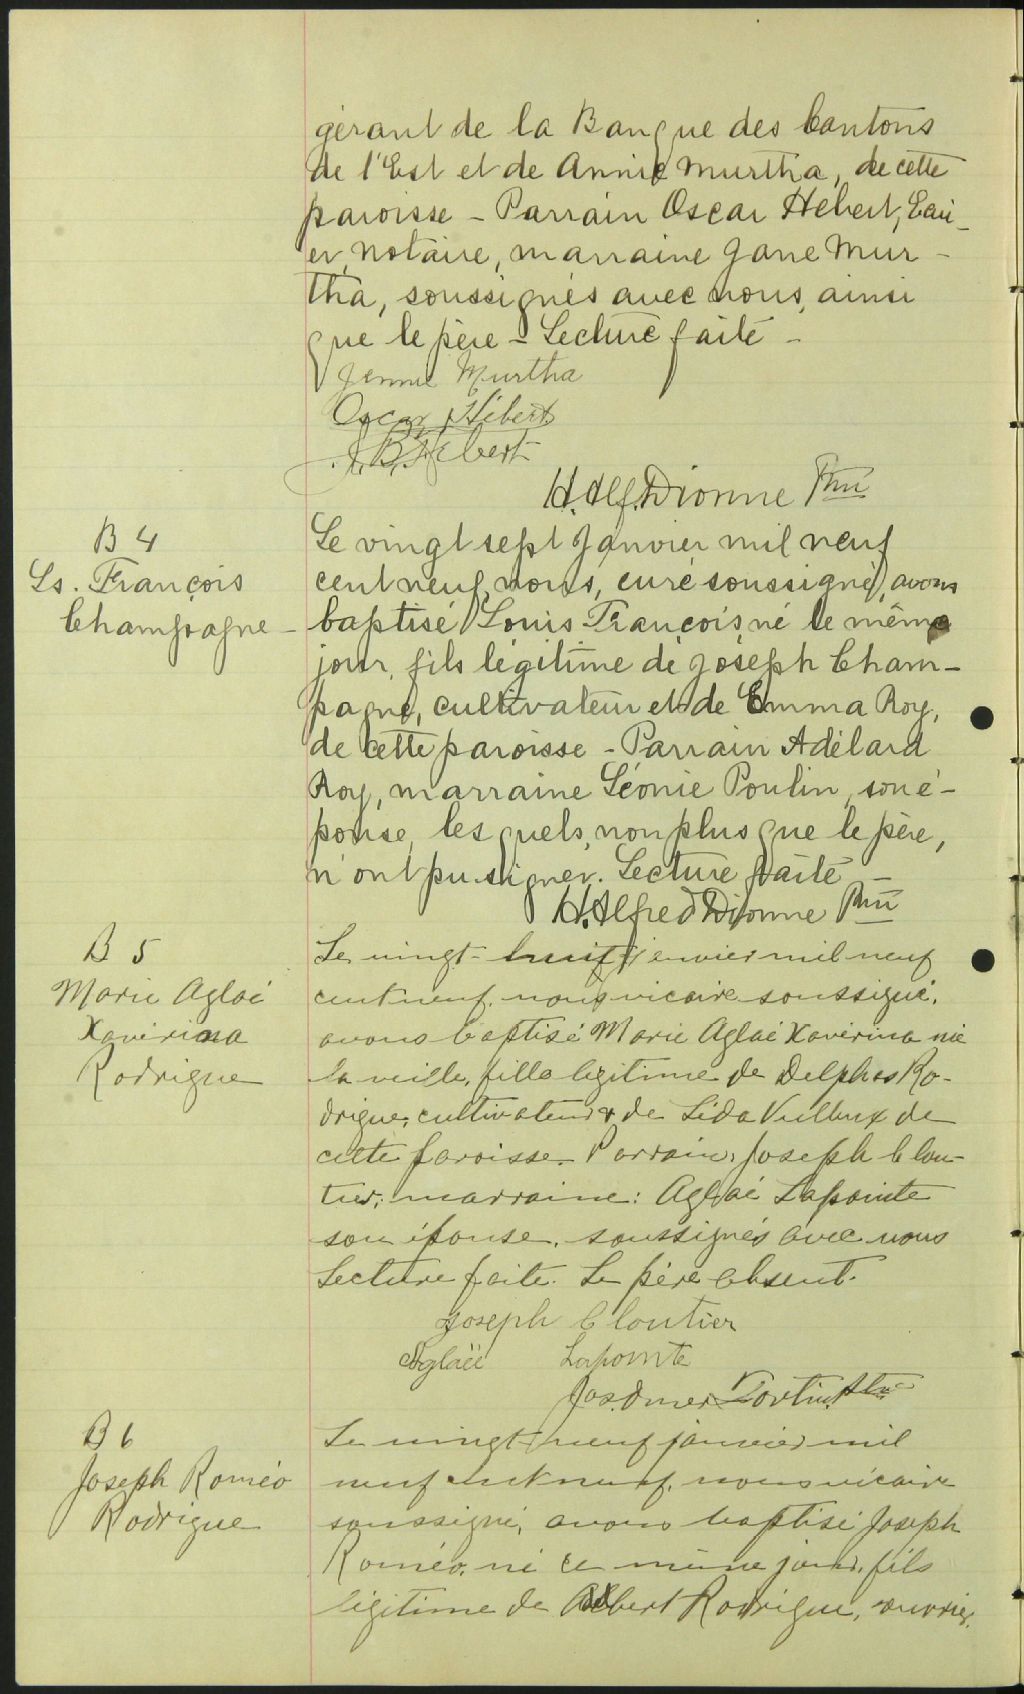 gérant de la Banque des Cantons
de l'Est et de Annie Murtha, de cette
paroisse - Parrain Oscar Hébert, Ecui-
er, Notaire, marraine Jane Mur-
tha, soussignés avec nous, ainsi
que le père - Lecture faite -
Jennie Murtha
Oscar Hébert
J. B. Hébert
H. Alf. Dionne Ptre
B 4
Ls. François
Champagne -
Le vingt sept Janvier mil neuf
cent neuf, nous, curé soussigné, avons
baptisé Louis François, né le même
jour, fils légitime de Joseph Cham-
pagne, cultivateur et de Emma Roy,
de cette paroisse - Parrain Adélard
Roy, marraine Léonie Poulin, son é-
pouse, lesquels, non plus que le père,
n'ont pu signer. Lecture faite -
H. Alfred Dionne Ptre
B 5
Marie Aglaé
Xavérina
Rodrigue
Le vingt-huit janvier mil neuf
cent neuf, nous vicaire soussigné,
avons baptisé Marie Aglaé Xavérina née
la veille, fille légitime de Delphes Ro-
drigue, cultivateur & de Léda Veilleux de
cette paroisse. Parrain, Joseph Clou-
tier; marraine: Aglaé Lapointe
son épouse, soussignés avec nous
Lecture faite. Le père absent.
Joseph Cloutier
Aglaée Lapointe
Jos. Omer Fortin Ptre
B 6
Joseph Roméo
Rodrigue
Le vingt-neuf janvier mil
neuf cent neuf, nous vicaire
soussigné, avons baptisé Joseph
Roméo, né ce même jour, fils
légitime de Albert Rodrigue, ouvrier,